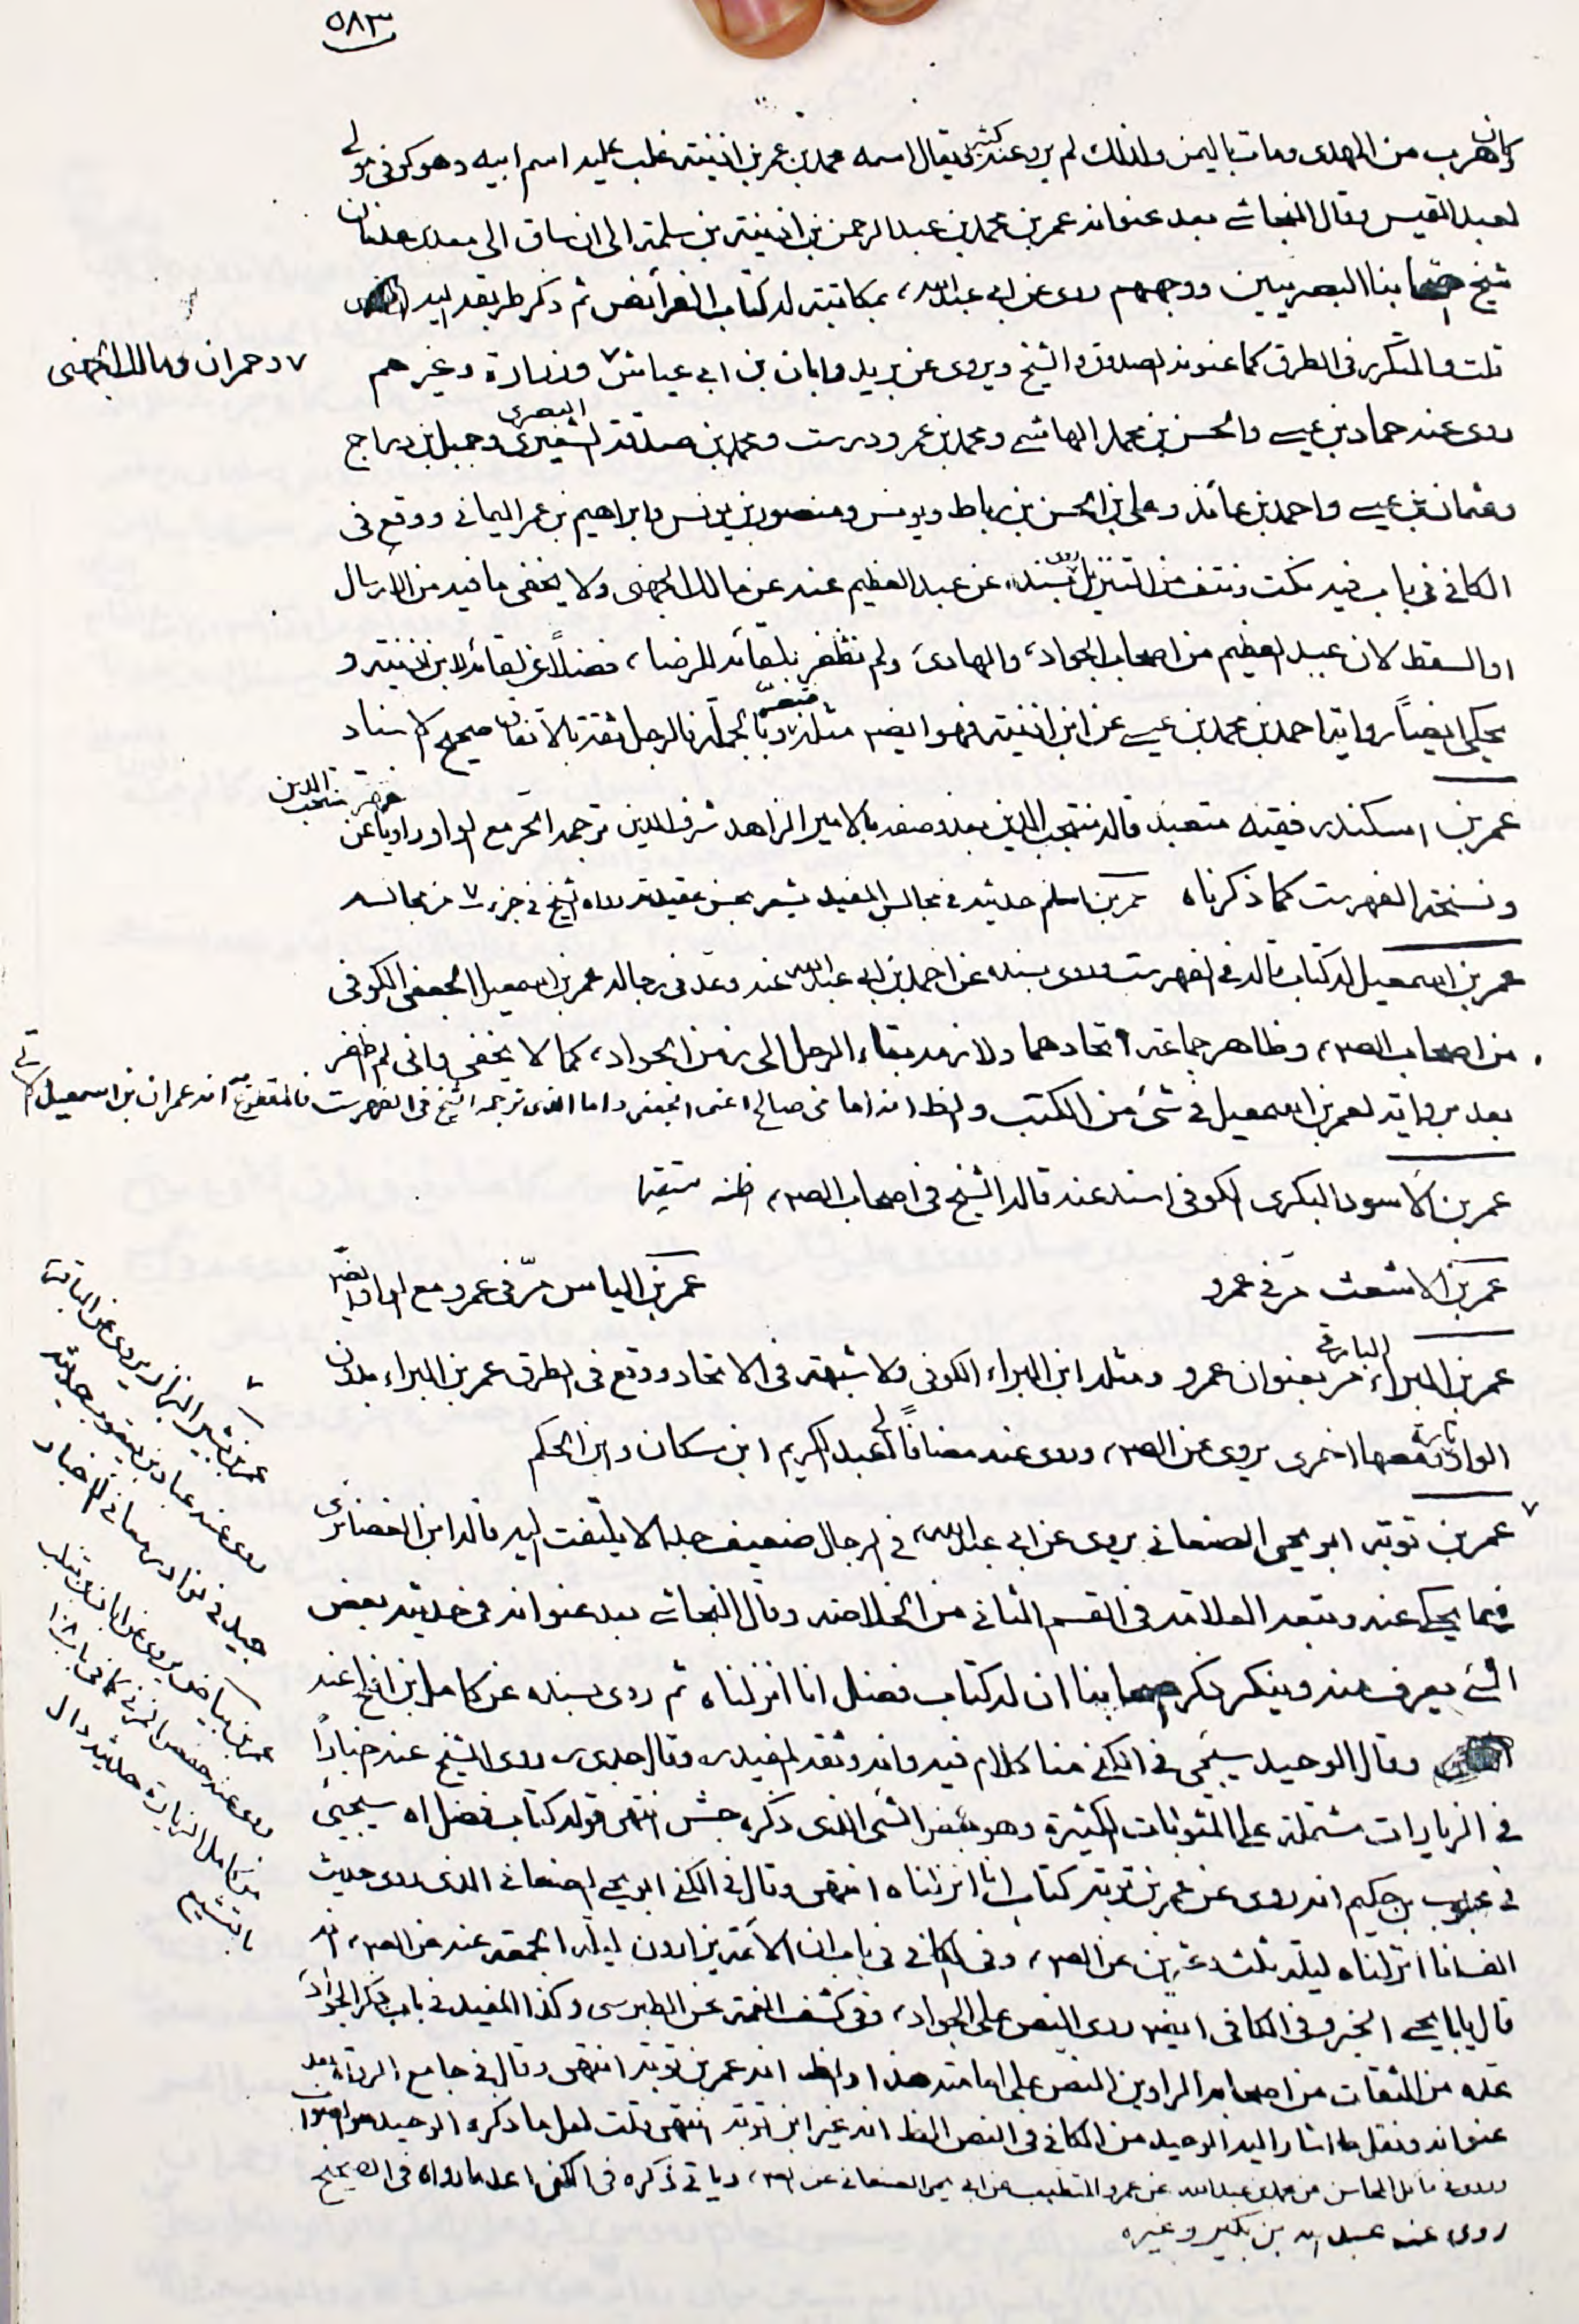 ٥٨٣
وكان هرب من المهدى ومات باليمن ولذلك لم يرو عنه كثير ويقال اسمه محمد بن عمر بن اذينة غلب عليه اسم ابيه وهو كوفى مولى
لعبد القيس وقال النجاشى بعد عنوانه عمر بن محمد بن عبد الرحمن بن اذينة بن سلمة الى ان ساق الى معد بن عدنان
شيخ اصحابنا البصريين ووجههم روى عن ابى عبد الله ع بمكاتبته له كتاب الفرائض ثم ذكر طريقه اليه
قلت والمتكرر فى الطرق كما عنونه الصدوق والشيخ ويروى عن بريد وابان بن ابى عياش ٧ وزرارة وغيرهم
٧ وحمران ومالك الجهنى
روى عنه حماد بن عيسى والحسن بن محمد الهاشمى ومحمد بن عمر ودرست ومحمد بن صدقة الشعيرى البصرى وجميل بن دراج
وعثمان بن عيسى واحمد بن عائذ وعلى بن الحسن بن رباط ويونس ومنصور بن يونس وابراهيم بن عمر اليمانى ووقع فى
الكافى فى باب فيه نكت ونتف من التنزيل روى بسنده عن عبد العظيم عنه عن مالك الجهنى ولا يخفى ما فيه من الارسال
او السقط لان عبد العظيم من اصحاب الجواد ع والهادى ع ولم نظفر بلقائه للرضا ع فضلاً عن لقائه لابن اذينة و
يحكى ايضاً رواية احمد بن محمد بن عيسى عن ابن اذينة فهو ايضاً مثله وبالجملة فالرجل ثقة بالاتفاق صحيح الاسناد
عمر بن اسكندر فقيه متعبد قاله منتجب الدين بعد وصفه بالامير الزاهد شرف الدين ترجمه الحر مع الواو راوياً عن فهرست منتجب الدين
ونسخة الفهرست كما ذكرناه عمر بن اسلم حديثه فى مجالس المفيد يشعر بحسن عقيدته رواه الشيخ فى جزء ٧ من مجالسه
عمر بن اسمعيل له كتاب قاله فى الفهرست وروى بسنده عن احمد بن ابى عبد الله عنه وعد فى رجاله عمر بن اسمعيل الجعفى الكوفى
من اصحاب الص ع وظاهر جماعة اتحادهما ولازمه بقاء الرجل الى زمن الجواد ع كما لا يخفى وانى لم اظفر
بعد برواية لعمر بن اسمعيل فى شئ من الكتب والظ انه امامى صالح اعنى الجعفى واما الذى ترجمه الشيخ فى الفهرست فالمقطوع انه عمران بن اسمعيل
عمر بن الاسود البكرى الكوفى اسند عنه قاله الشيخ فى اصحاب الص ع
عمر بن الاشعث مر فى عمرو
عمر بن الياس مرّ فى عمرو مع الواو ايضاً
عمر بن البراء البارقى مر بعنوان عمرو ومثله ابن البراء الكوفى ولا شبهة فى الاتحاد ووقع فى الطرق عمر بن البراء بدون
الواو تارة ومعها اخرى يروى عن الص ع وروى عنه مضافاً الى عبد الكريم ابن مسكان وابن الحكم
عمر بن توبة ابو يحيى الصنعانى يروى عن ابى عبد الله ع فى الرجال ضعيف جدا لا يلتفت اليه قاله ابن الغضائرى
فيما يحكى عنه وتبعه العلامة فى القسم الثانى من الخلاصة وقال النجاشى بعد عنوانه فى حديثه بعض
الشئ يعرف منه وينكر ذكر اصحابنا ان له كتاب فضل انا انزلناه ثم روى بسنده عن كامل بن افلح عنه
وقال الوحيد سيجئ فى الكنى منا كلام فيه وانه وثقه المفيد ره وقال جدى ره روى الشيخ عنه اخباراً
فى الزيارات مشتملة على المثوبات الكثيرة وهو بعض الشئ الذى ذكره جش انتهى قوله كتاب فضل اه سيجئ
فى محبوب بن حكيم انه روى عن عمر بن توبة كتاب انا انزلناه انتهى وقال فى الكنى ابو يحيى الصنعانى الذى روى حديث
الف انا انزلناه ليلة ثلث وعشرين عن الص ع وفى الكافى فى باب ان الائمة يزادون ليلة الجمعة عنه عن الص ع انه
قال يا ابا يحيى الخبر وفى الكافى ايضاً روى النص على الجواد ع وفى كشف الغمة عن الطبرسى وكذا المفيد فى باب ذكر الجواد ع
عده من الثقات من اصحابه الراوين النص على امامته هذا والظ انه عمر بن توبة انتهى وقال فى جامع الرواة بعد
عنوانه ونقل ما اشار اليه الوحيد من الكافى فى النص الظ انه غير ابن توبة انتهى قلت لعل ما ذكره الوحيد هو الصواب
وروى فى المحاسن عن محمد بن عبد الله عن عمرو المتطبب عن ابى يحيى الصنعانى عن الص ع وياتى ذكره فى الكنى
روى عنه عبد الله بن بكير وغيره
عمر بن بشير البزاز يروى عن الباقر ع
روى عنه عباد بن يعقوب حديثه
جيد فى نوادر معانى الاخبار
عمر بن بياض يروى عن ابان بن تغلب
روى عنه حفص المزنى كما فى باب ١٠٨
من كامل الزيارة حديثه دال
بالتشيع